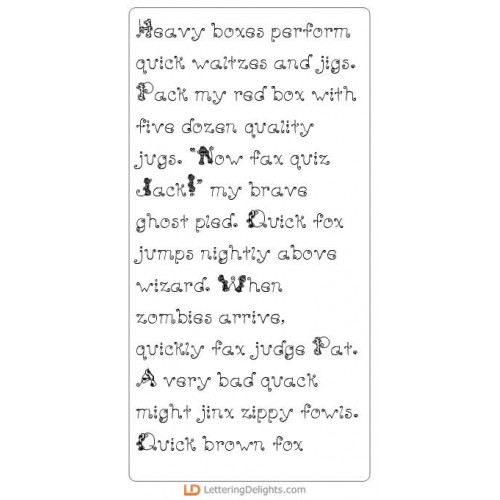 Heavy boxes perform
quick waltzes and jigs.
Pack my red box with
five dozen quality
jugs. "Now fax quiz
Jack!" my brave
ghost pled. Quick fox
jumps nightly above
wizard. When
zombies arrive,
quickly fax judge Pat.
A very bad quack
might jinx zippy fowls.
Quick brown fox
LD LetteringDelights.com